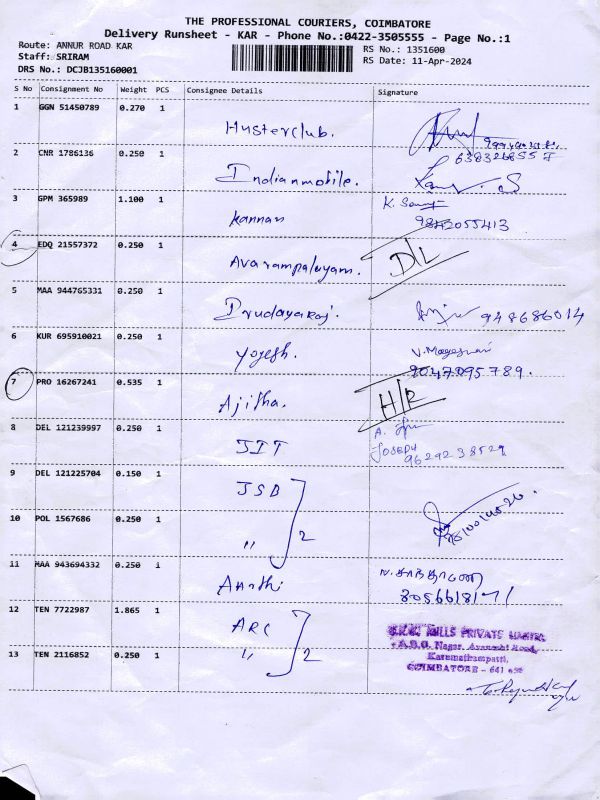 THE PROFESSIONAL COURIERS, COIMBATORE
Delivery Runsheet - KAR - Phone No.:0422-3505555 - Page No.:1
Route: ANNUR ROAD KAR
RS No.: 1351600
Staff: SRIRAM
RS Date: 11-Apr-2024
DRS No.: DCJB135160001
S No Consignment No Weight PCS Consignee Details Signature
1 GGN 51450789 0.270 1 Husterclub.
2 CNR 1786136 0.250 1 Indianmobile.
3 GPM 365989 1.100 1 kannan K.
9842055413
4 EDQ 21557372 0.250 1 Avarampalayam. D/L
5 MAA 944765331 0.250 1 Irudayaraj. 948686014
6 KUR 695910021 0.250 1 Yogesh. V. Mageswari
9047095789.
7 PRO 16267241 0.535 1 Ajitha. H/R
8 DEL 121239997 0.250 1 JIT A.
JOSEPH
9629238529
9 DEL 121225704 0.150 1 JSB
10 POL 1567686 0.250 1 " 2
11 MAA 943694332 0.250 1 Ananthi
12 TEN 7722987 1.865 1 ARC
13 TEN 2116852 0.250 1 " 2
MILLS PRIVATE
A.B.G. Nagar, Avanashi Road,
Karumathampatti,
COIMBATORE - 641